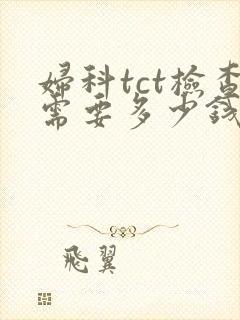 婦科tct檢查
需要多少錢
飛翼